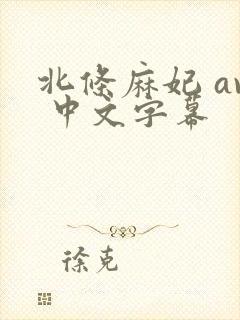 北條麻妃 av
中文字幕
徐克